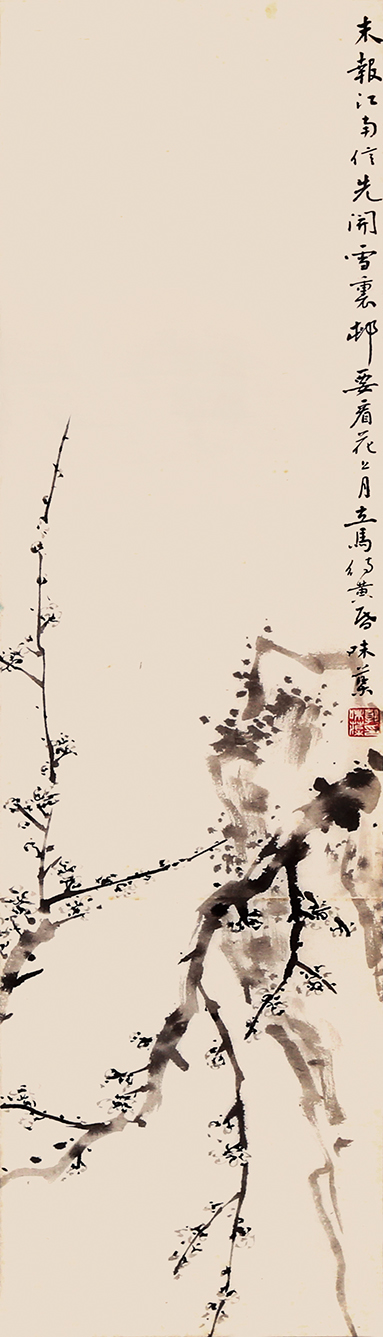 未報江南信先開雪裏邨要看花上月立馬待黃昏味蕖